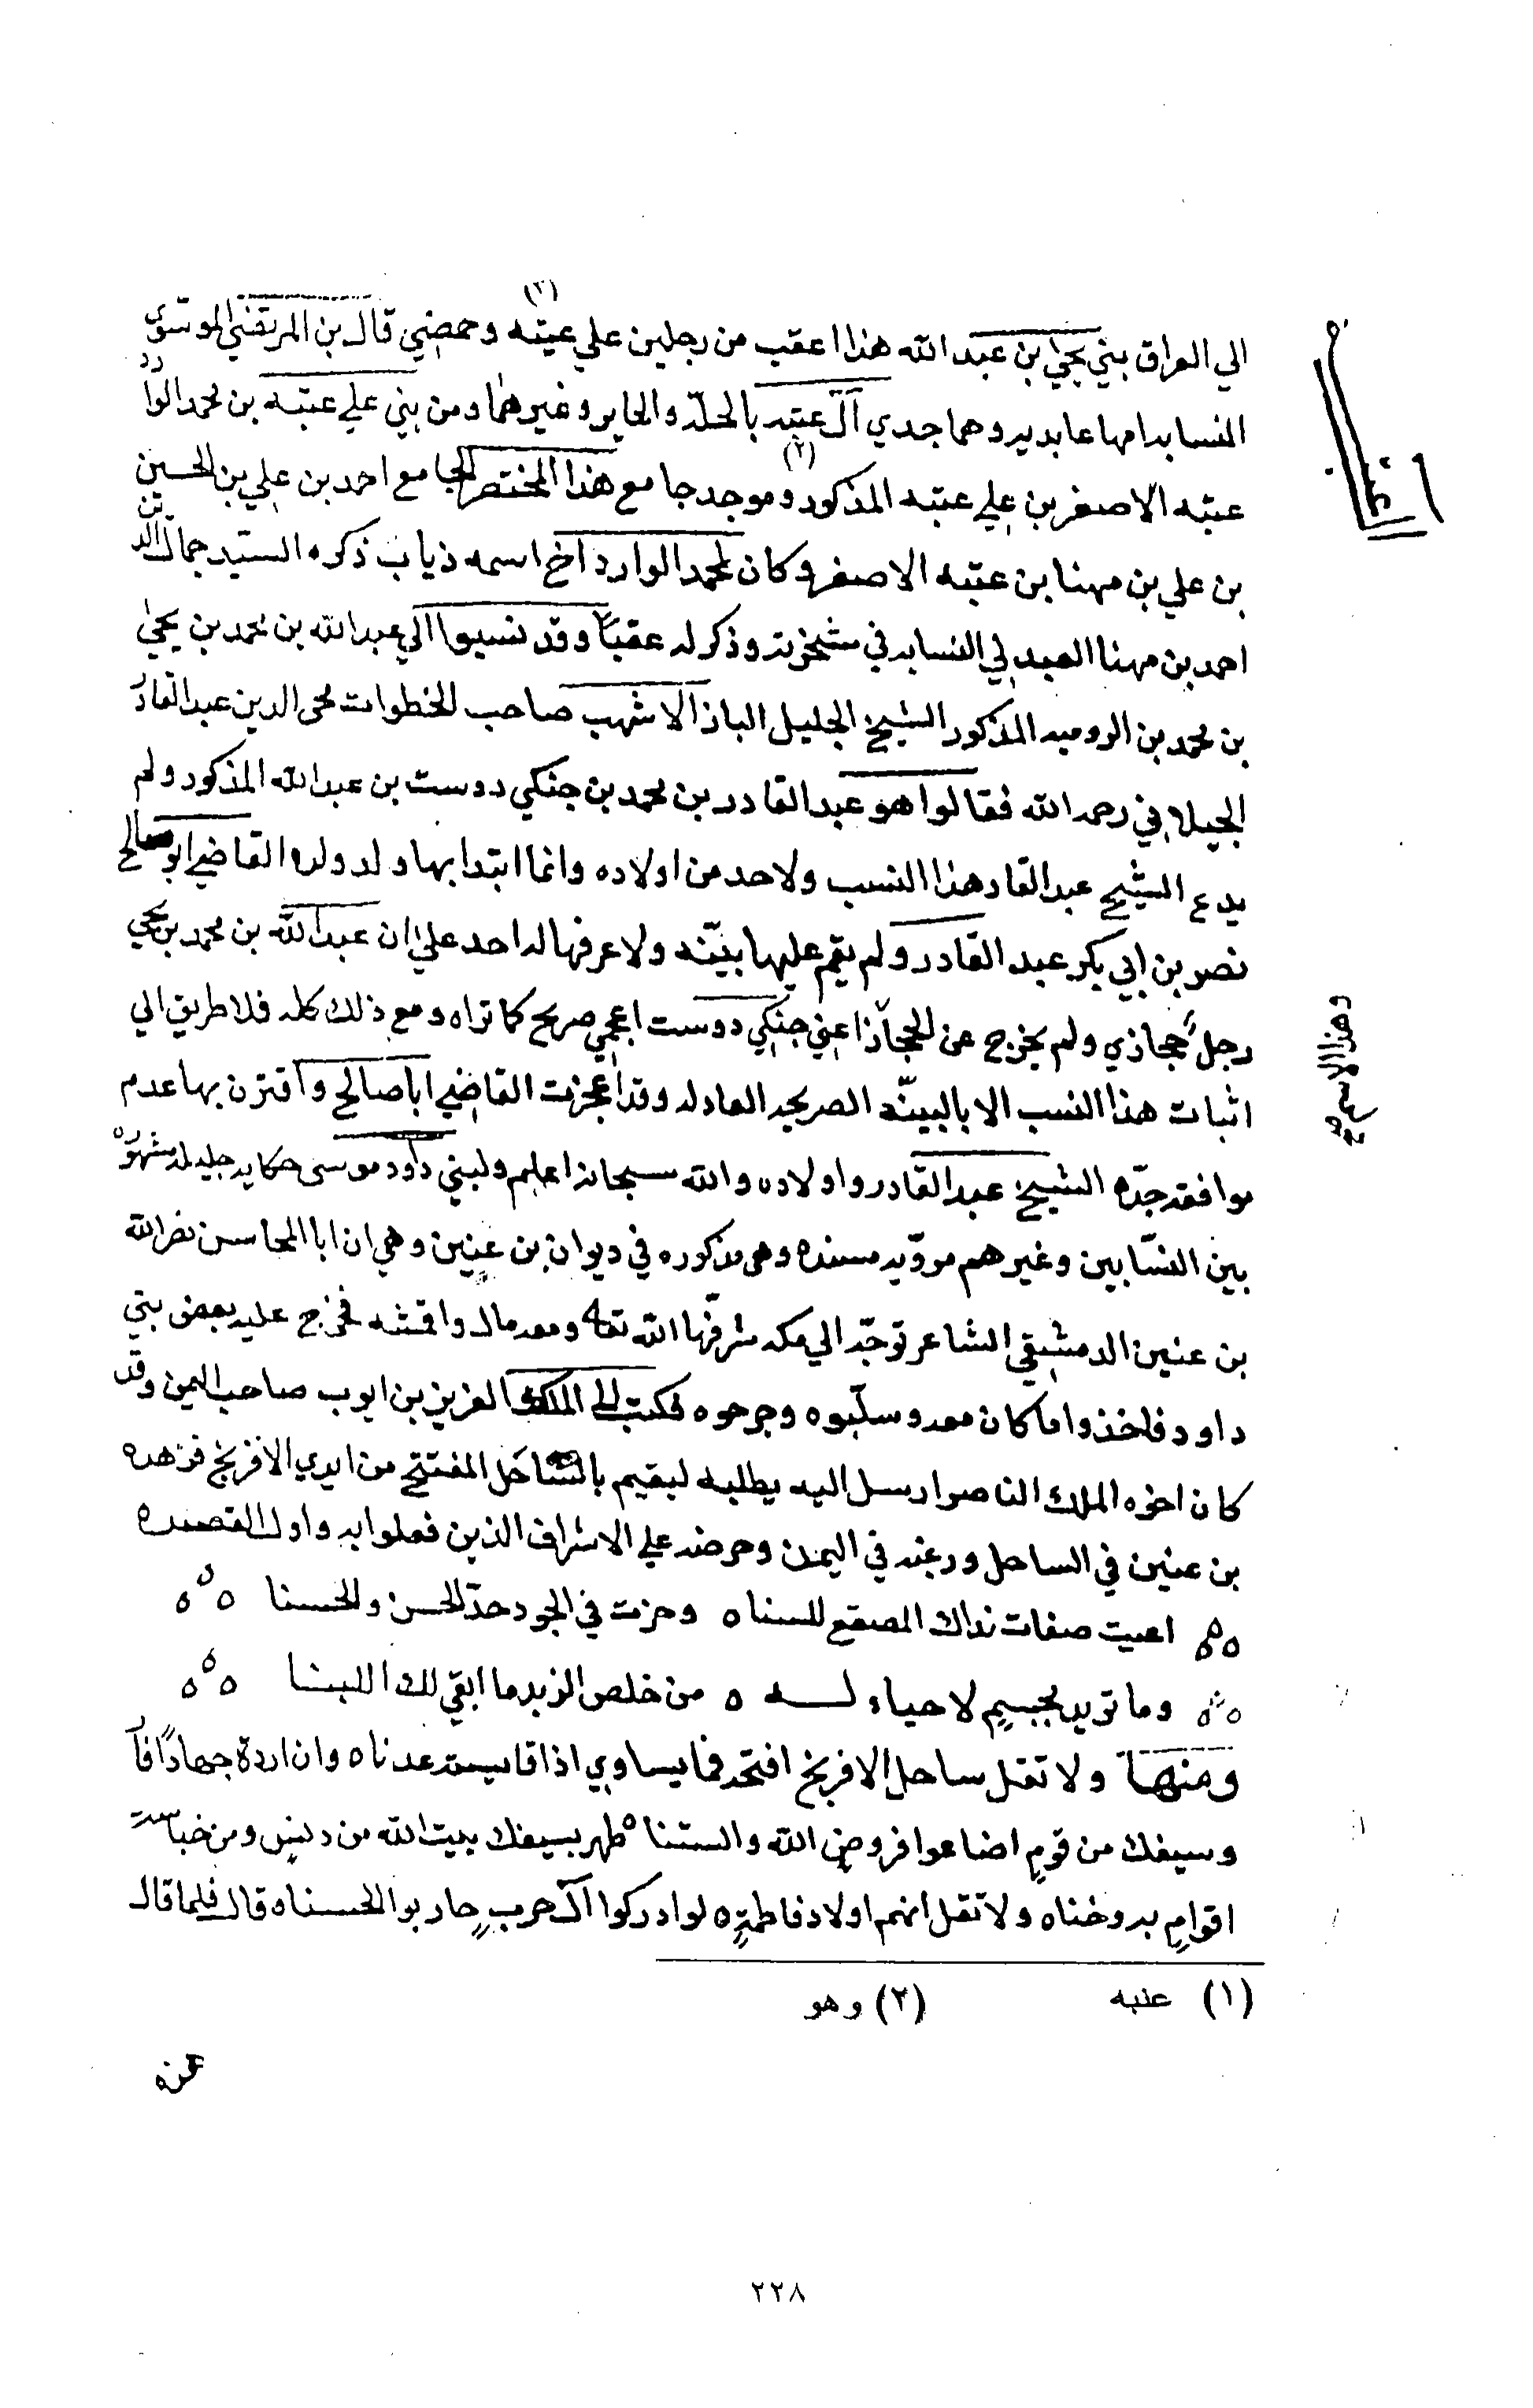 الي العراق بني يحيٰ بن عبد الله هذا اعقب من رجلين علي عتبه (١) وحمضي قال بن المرتضي الموسوي
النسابه امها عابديه وهما جدي آل عتبه بالحلّه والحاير وغيرهما ومن بني علي عتبه بن محمد الوارد
عتبه الاصغر بن علي عتبه المذكور وموجد (٢) جامع هذا المختصر الجامع احمد بن علي بن الحسين
بن علي بن مهنا بن عتبه الاصغر وكان لمحمد الوارد اخ اسمه ذياب ذكره السيد جمال الدين
احمد بن مهنا العبدلي النسابه في مشجرته وذكر له عقبًا وقد نسبوا الي عبد الله بن محمد بن يحيٰ
بن محمد بن الروميه المذكور الشيخ الجليل الباز الاشهب صاحب الخطوات محي الدين عبد القادر
الجيلاني رحمه الله فقالوا هو عبد القادر بن محمد بن جنكي دوست بن عبد الله المذكور ولم
يدع الشيخ عبد القادر هذا النسب ولا احد من اولاده وانما ابتدا بها ولد ولده القاضي ابو صالح
نصر بن ابي بكر عبد القادر ولم يقم عليها بيّنه ولا عرفها له احد علي ان عبد الله بن محمد بن يحي
رجل حجازي ولم يخرج عن الحجاز
وهذا الاسم صح
اعني جنكي دوست اعجمي صريح كما تراه ومع ذلك كله فلا طريق الي
اثبات هذا النسب الا بالبينّه الصريحه العادله وقد اعجزت القاضي ابا صالح واقترن بها عدم
موافقه جدّه الشيخ عبد القادر واولاده والله سبحانه اعلم ولبني داود موسي حكايه جليله مشهوره
بين النسّابين وغيرهم مرويّه مسنده وهي مذكوره في ديوان بن عنين وهي ان ابا المحاسن نصر الله
بن عنين الدمشقي الشاعر توجّه الي مكه شرفّها الله تعا ومعه مال واقمشه فخرج عليه بعض بني
داود فاخذوا ما كان معه وسلبوه وجرحوه فكتب الي الملك العزيز بن ايوب صاحب اليمن وقد
كان اخوه الملك الناصر ارسل اليه يطلبه ليقيم بالساحل المفتتح من ايدي الافرنج فزهده
بن عنين في الساحل ورغبه في اليمن وحرضه علي الاشراف الذين فعلوا به واول القصيده
اعيت صفات نداك المصقع اللسنا ه وحزت في الجود حدّ الحسن والحسنا
وما تريد بجسمٍ لا حياء له ه من خلص الزبد ما ابقي لك اللبنا
ومنها ولا تقل ساحل الافرنج افتحه فما يساوي اذا قايسته عدنا ه وان اردة جهادًا فا
وسيفك من قومٍ اضاعوا فروض الله والسننا ه طهر بسيفك بيت الله من دنس ومن خباسة
اقوامٍ به وخنا ه ولا تقل انهم اولاد فاطمةٍ ه لو ادركوا آل حربٍ حاربوا الحسنا ه قال فلما قال
(١) عنبه (٢) وهو
٢٢٨